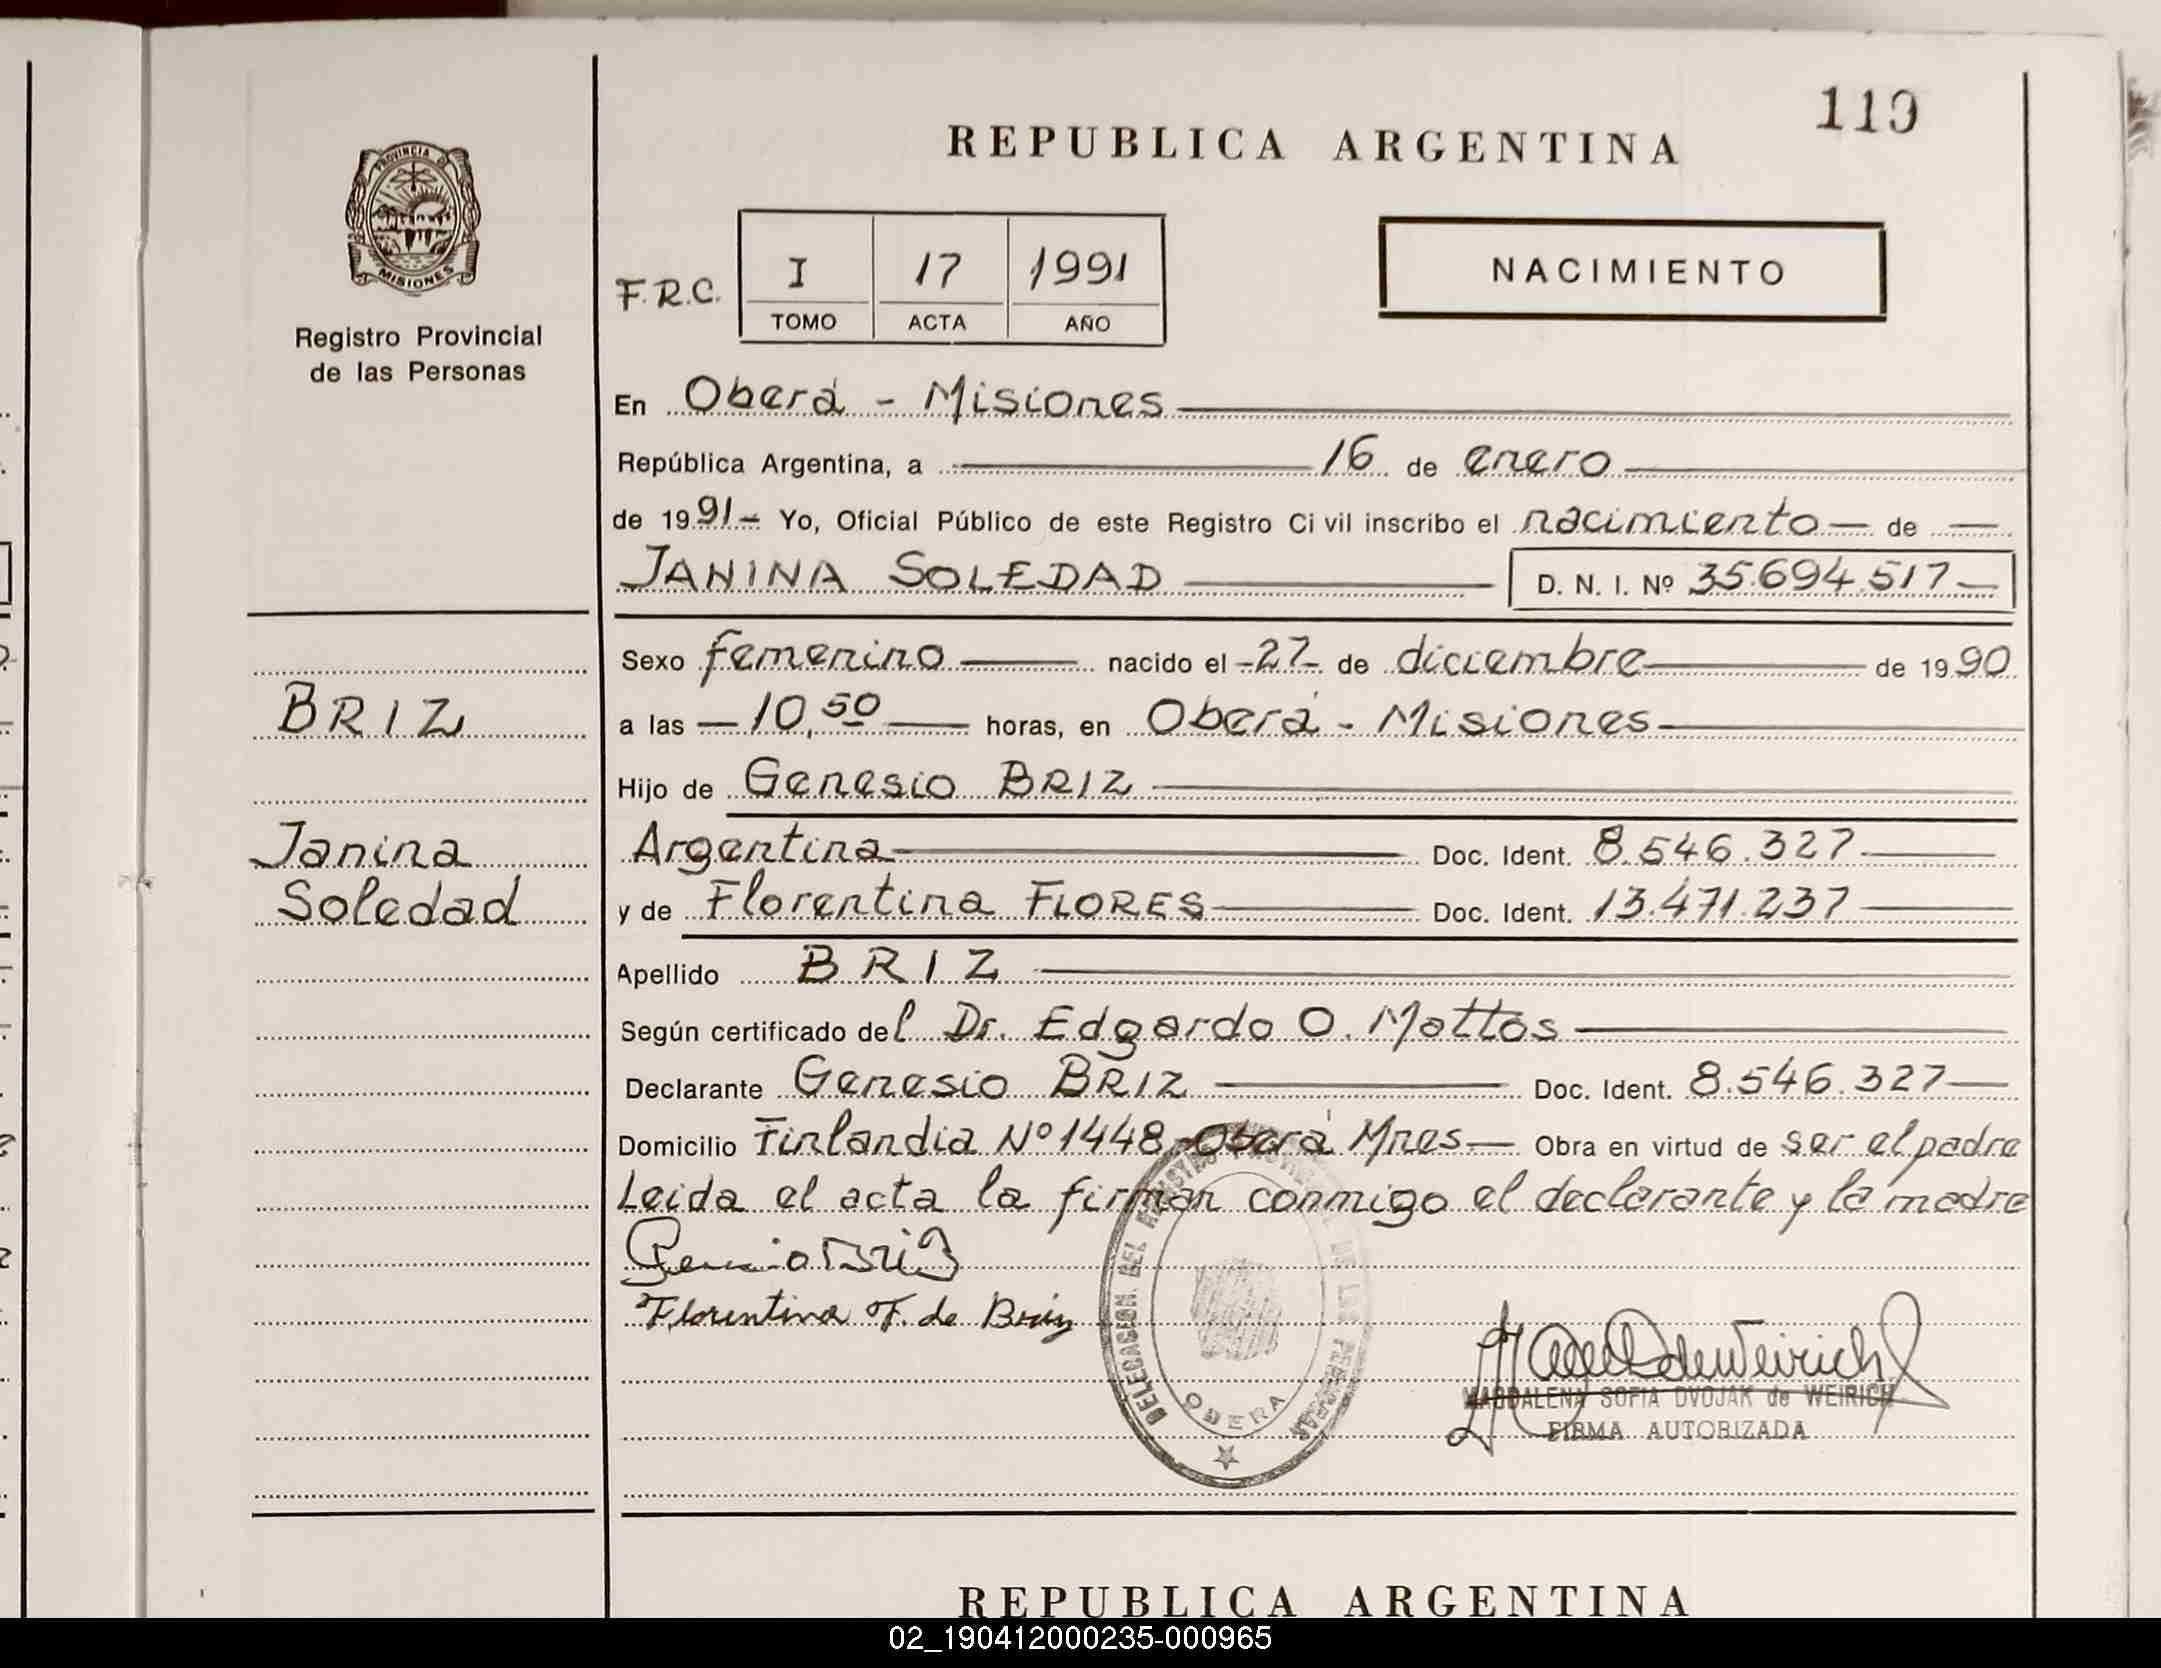 119
REPUBLICA ARGENTINA
PROVINCIA DE
MISIONES
Registro Provincial
de las Personas
F.R.C.
I 17 1991
TOMO ACTA AÑO
NACIMIENTO
En Oberá - Misiones
República Argentina, a 16 de enero
de 1991- Yo, Oficial Público de este Registro Civil inscribo el nacimiento de
JANINA SOLEDAD D. N. I. Nº 35.694.517
Sexo femenino nacido el -27- de diciembre de 1990
BRIZ
a las 10,50 horas, en Oberá - Misiones
Hijo de Genesio BRIZ
Janina
Argentina Doc. Ident. 8.546.327
Soledad
y de Florentina FLORES Doc. Ident. 13.471.237
Apellido BRIZ
Según certificado del Dr. Edgardo O. Mattos
Declarante Genesio BRIZ Doc. Ident. 8.546.327
Domicilio Finlandia Nº 1448 - Oberá Mnes. Obra en virtud de ser el padre
Leida el acta la firman conmigo el declarante y la madre
Genesio Briz
Florentina F. de Briz
DELEGACION DEL REGISTRO PROVINCIAL DE LAS PERSONAS
OBERA
MAGDALENA SOFIA DVOJAK de WEIRICH
FIRMA AUTORIZADA
REPUBLICA ARGENTINA
02_190412000235-000965